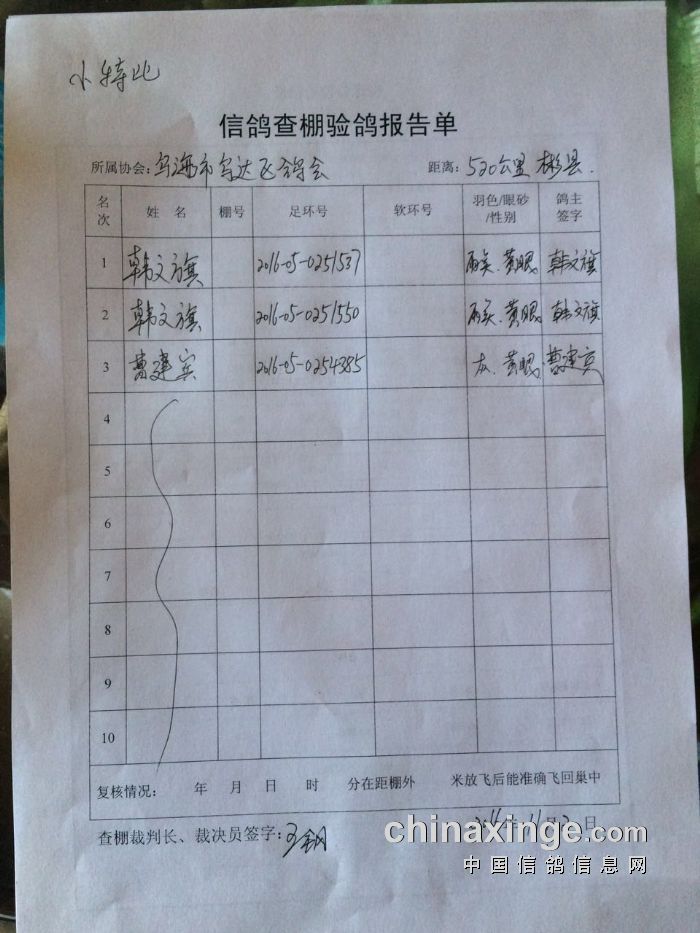 小特比
信鸽查棚验鸽报告单
所属协会：乌海市乌达飞鸽会 距离：520公里 彬县.
名次 姓 名 棚号 足环号 软环号 羽色/眼砂/性别 鸽主签字
1 韩文旗 2016-05-0251537 雨点、黄眼 韩文旗
2 韩文旗 2016-05-0251550 雨点、黄眼 韩文旗
3 曹建宾 2016-05-0254385 灰、黄眼 曹建宾
4
5
6
7
8
9
10
复核情况： 年 月 日 时 分在距棚外 米放飞后能准确飞回巢中
11月2日
查棚裁判长、裁决员签字：
chinaxinge.com
中国信鸽信息网